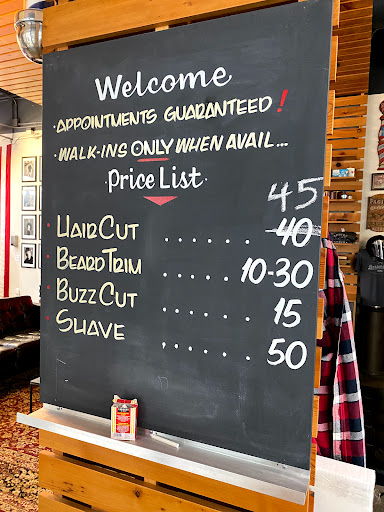 Welcome
·APPOINTMENTS GUARANTEED!
·WALK-INS ONLY WHEN AVAIL...
·Price List·
45
·HAIRCUT ...... 40
·BEARDTRIM ..... 10-30
·BUZZCUT ...... 15
·SHAVE ...... 50